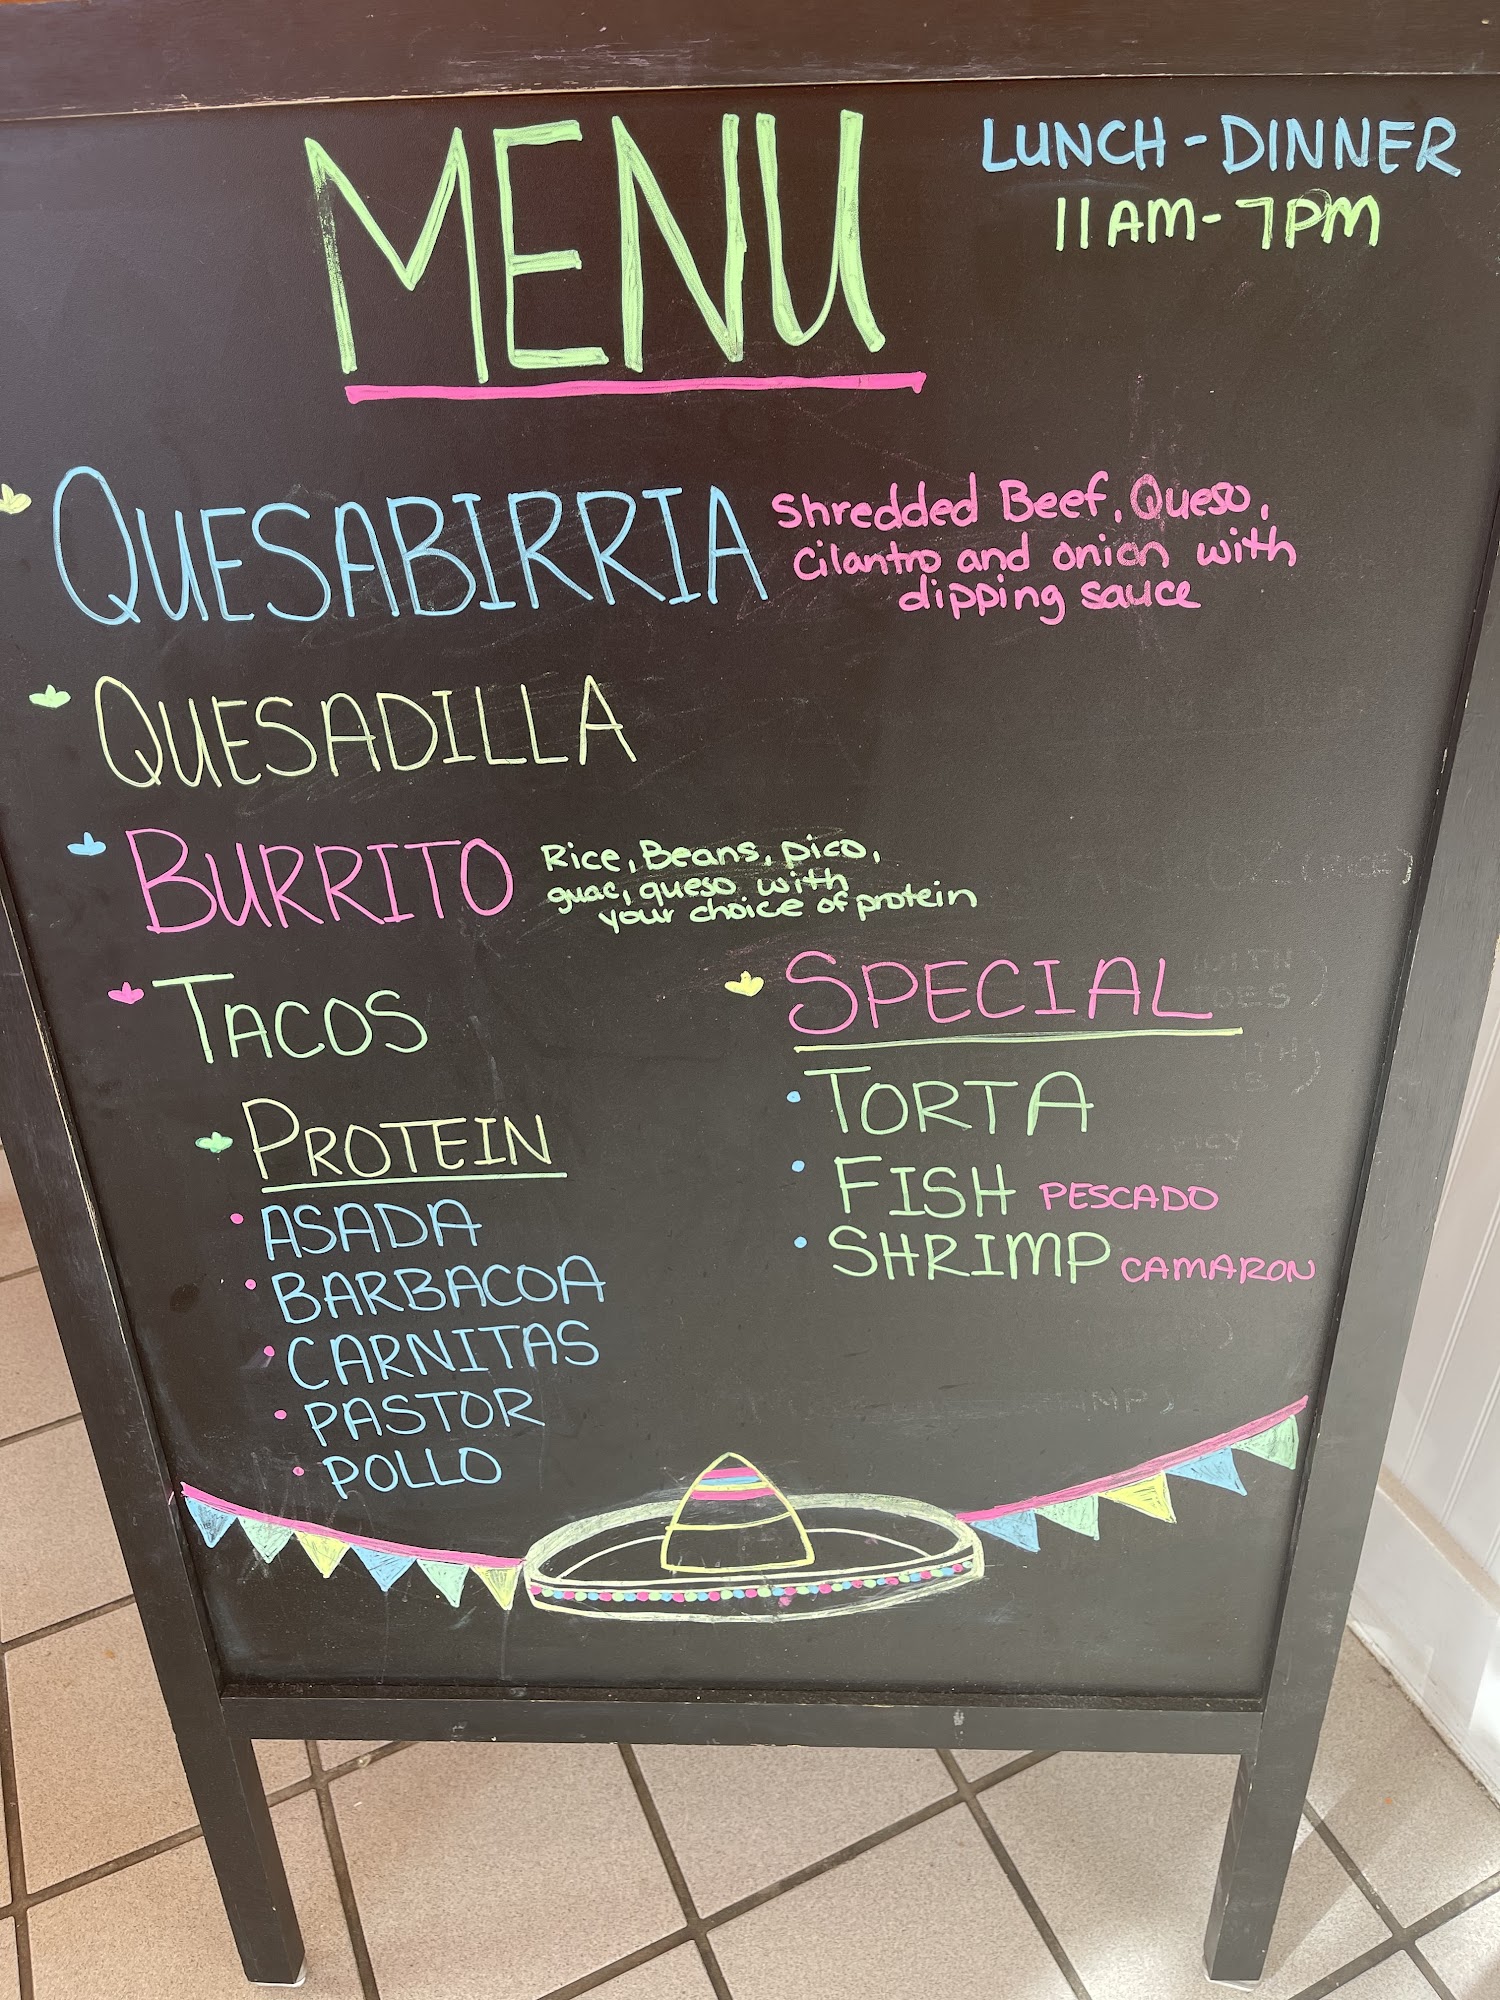 MENU
LUNCH-DINNER
11AM-7PM
QUESABIRRIA
Shredded Beef, Queso,
cilantro and onion with
dipping sauce
QUESADILLA
BURRITO
Rice, Beans, pico,
guac, queso with
your choice of protein
TACOS
PROTEIN
ASADA
BARBACOA
CARNITAS
PASTOR
POLLO
SPECIAL
TORTA
FISH PESCADO
SHRIMP CAMARON